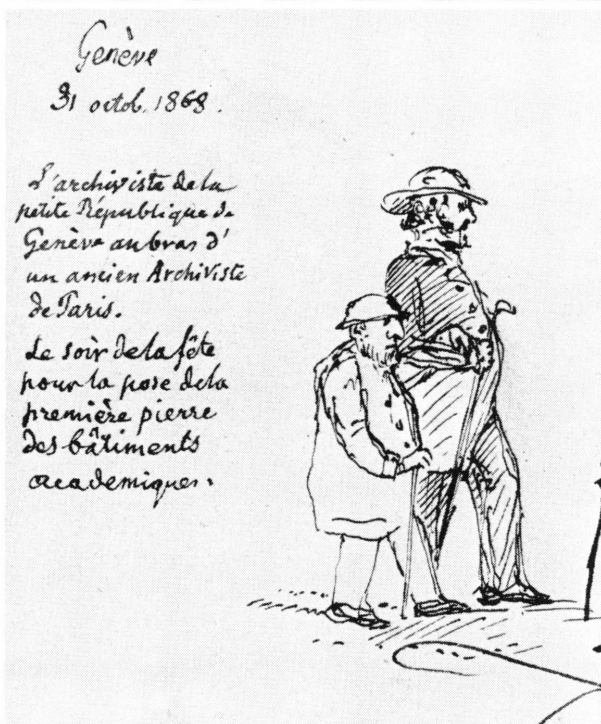 Genève
31 octob. 1868.
L'archiviste de la
petite République de
Genève au bras d'
un ancien Archiviste
de Paris.
Le soir de la fête
pour la pose de la
première pierre
des bâtiments
academiques.